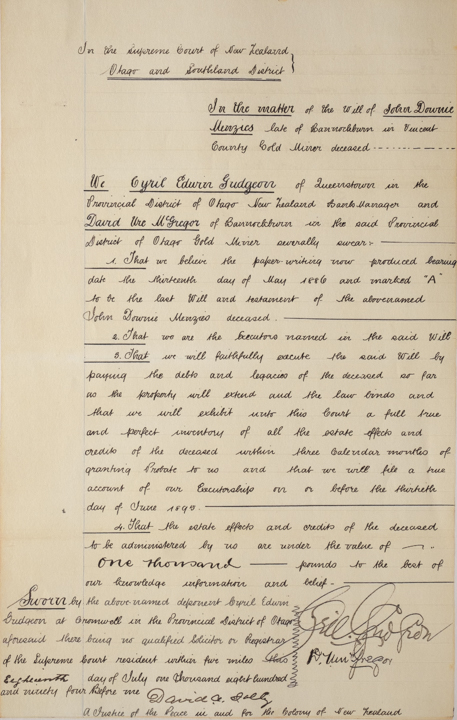 In the Supreme Court of New Zealand
Otago and Southland District
In the matter of the Will of John Downie
Menzies late of Bannockburn in Vincent
County Gold Miner deceased
We Cyril Edwin Gudgeon of Queenstown in the
Provincial District of Otago New Zealand Bank Manager and
David Ure McGregor of Bannockburn in the said Provincial
District of Otago Gold Miner severally swear:—
1. That we believe the paper-writing now produced bearing
date the thirteenth day of May 1886 and marked "A"
to be the last Will and testament of the abovenamed
John Downie Menzies deceased.
2. That we are the Executors named in the said Will
3. That we will faithfully execute the said Will by
paying the debts and legacies of the deceased so far
as the property will extend and the law binds and
that we will exhibit unto this Court a full true
and perfect inventory of all the estate effects and
credits of the deceased within three Calendar months of
granting Probate to us and that we will file a true
account of our Executorships on or before the thirtieth
day of June 1895.
4. That the estate effects and credits of the deceased
to be administered by us are under the value of
One thousand pounds to the best of
our knowledge information and belief.
Sworn by the above-named deponent Cyril Edwin
Gudgeon at Cromwell in the Provincial District of Otago
aforesaid there being no qualified Solicitor or Registrar
of the Supreme Court resident within five miles this
Eighteenth day of July one thousand eight hundred
and ninety four before me
Cyril E. Gudgeon
D. Ure McGregor
David A. Jolly
A Justice of the Peace in and for the Colony of New Zealand